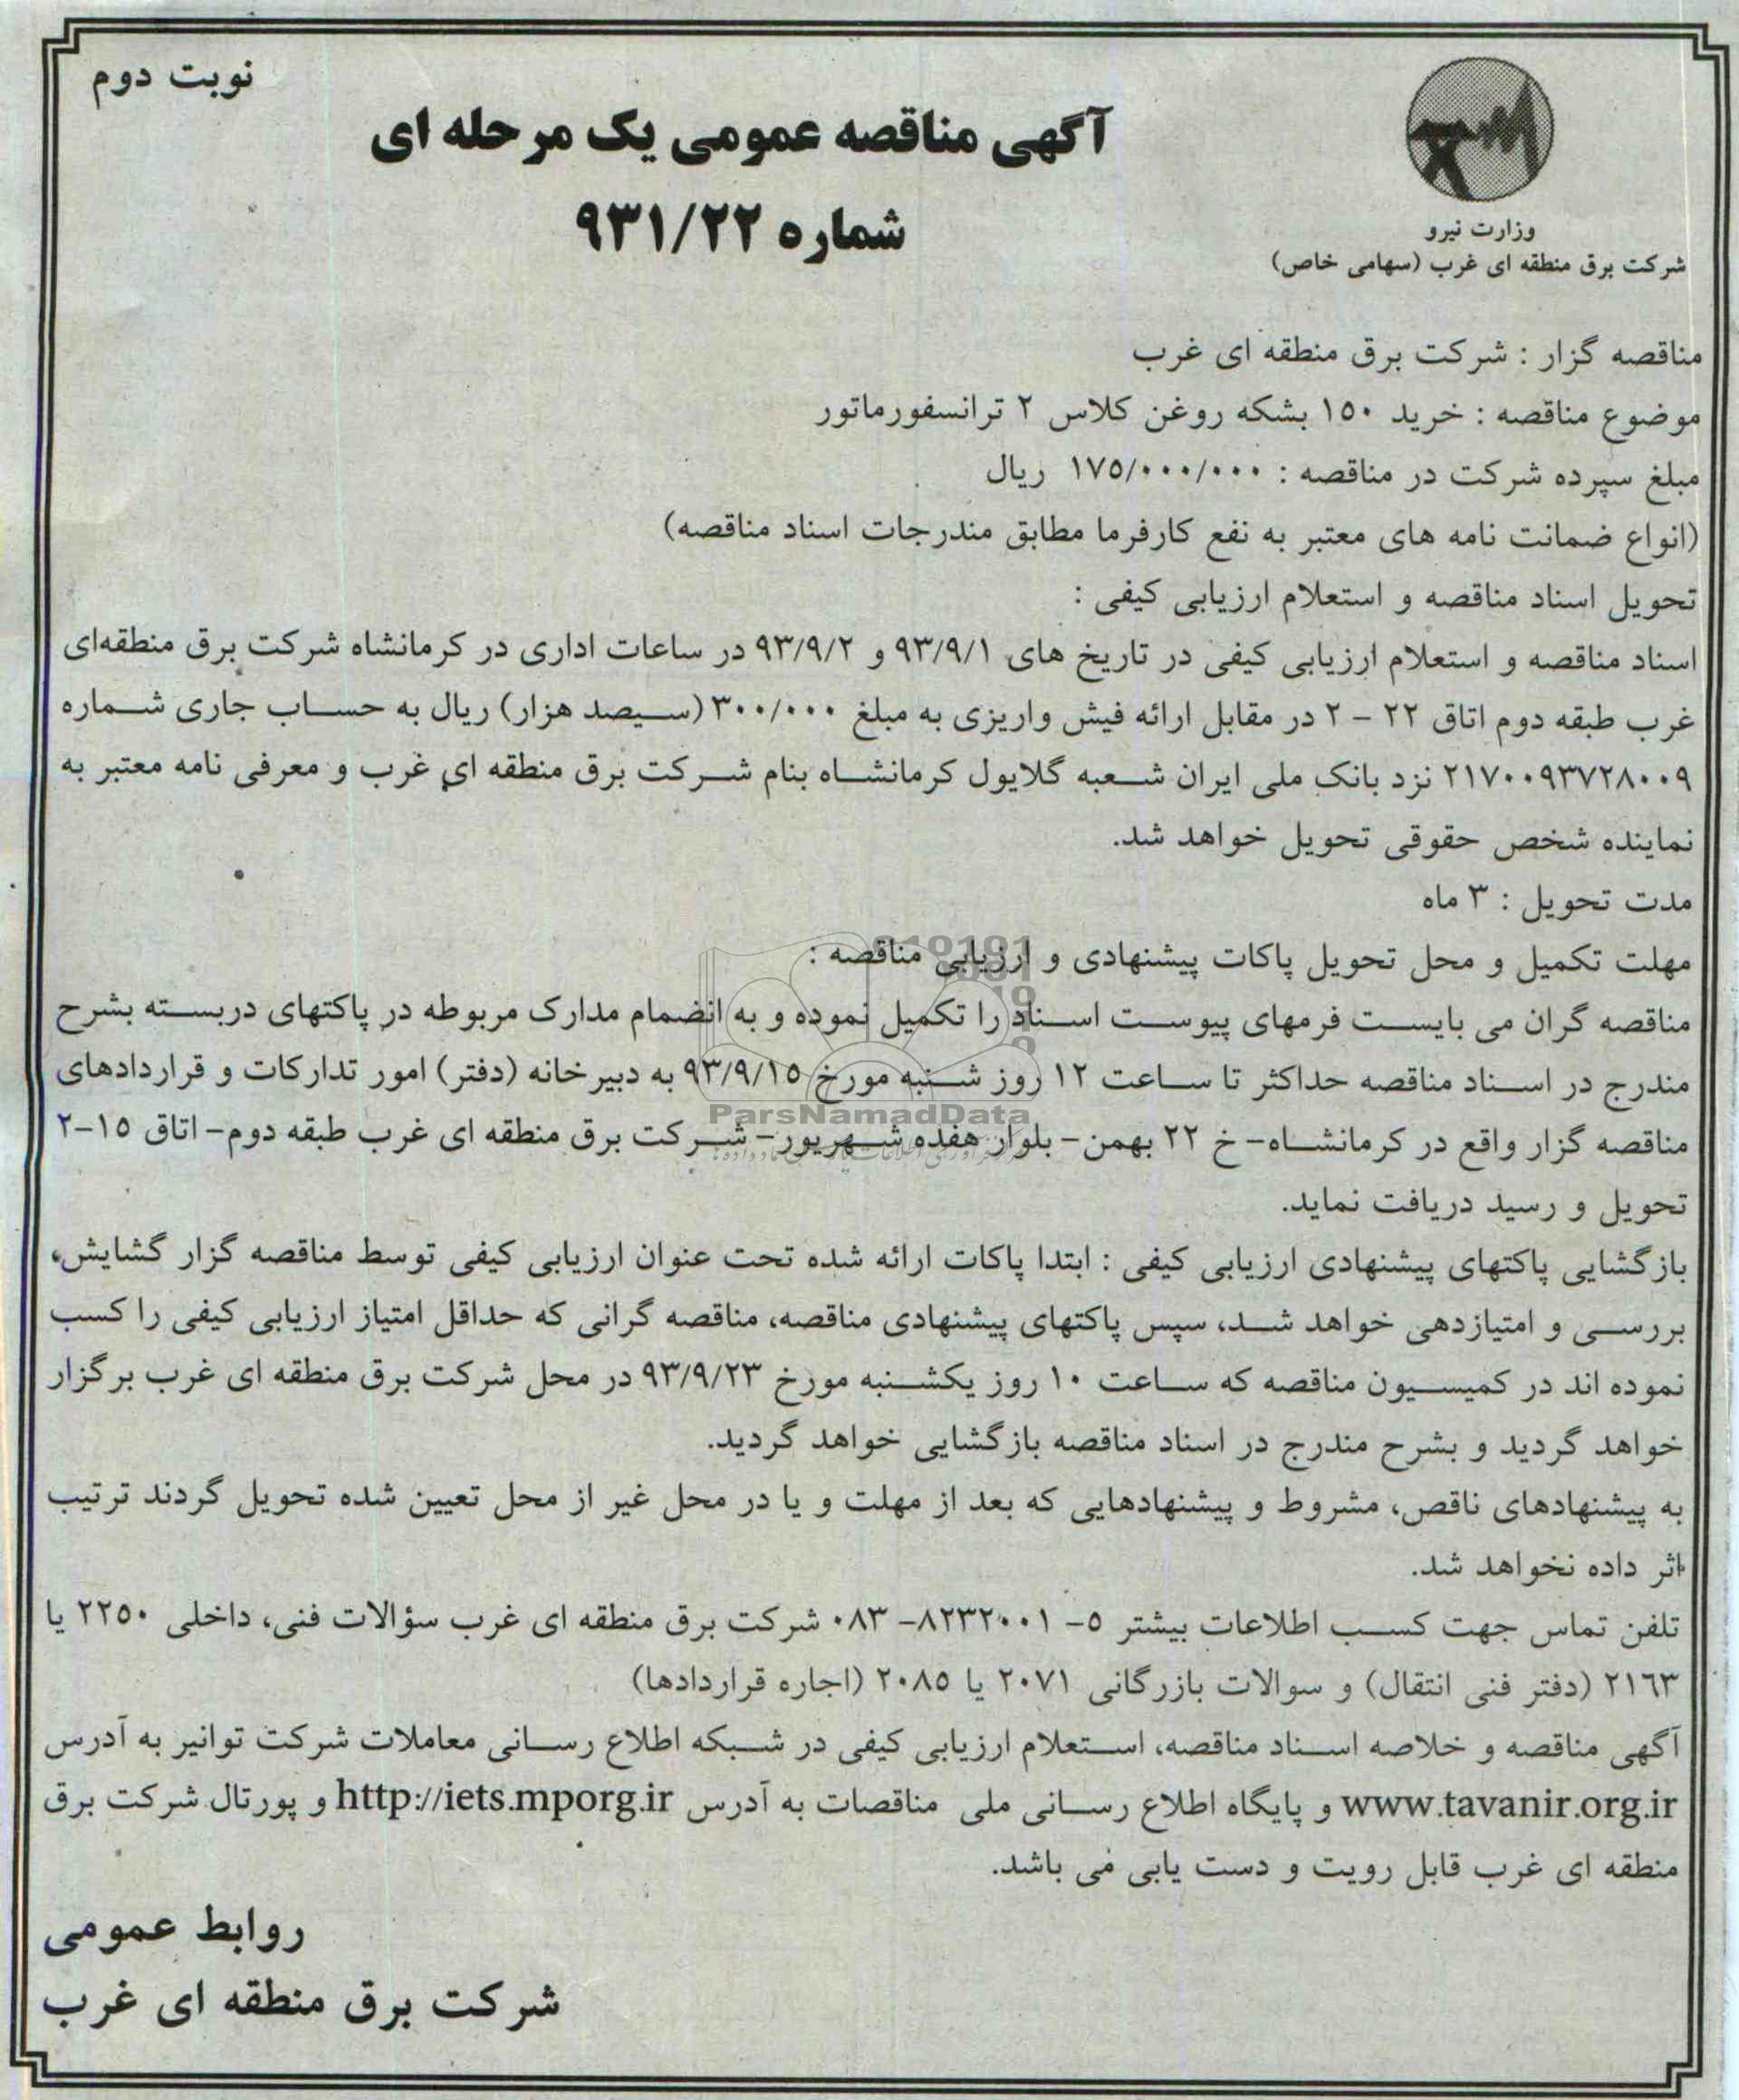 نوبت دوم
آگهی مناقصه عمومی یک مرحله ای
شماره ۹۳۱/۲۲
وزارت نیرو
شرکت برق منطقه ای غرب (سهامی خاص)
مناقصه گزار : شرکت برق منطقه ای غرب
موضوع مناقصه : خرید ۱۵۰ بشکه روغن کلاس ۲ ترانسفورماتور
مبلغ سپرده شرکت در مناقصه : ۱۷۵/۰۰۰/۰۰۰ ریال
(انواع ضمانت نامه های معتبر به نفع کارفرما مطابق مندرجات اسناد مناقصه)
تحویل اسناد مناقصه و استعلام ارزیابی کیفی :
اسناد مناقصه و استعلام ارزیابی کیفی در تاریخ های ۹۳/۹/۱ و ۹۳/۹/۲ در ساعات اداری در کرمانشاه شرکت برق منطقه‌ای
غرب طبقه دوم اتاق ۲۲ – ۲ در مقابل ارائه فیش واریزی به مبلغ ۳۰۰/۰۰۰ (سیصد هزار) ریال به حساب جاری شماره
۲۱۷۰۰۹۳۷۲۸۰۰۹ نزد بانک ملی ایران شعبه گلایول کرمانشاه بنام شرکت برق منطقه ای غرب و معرفی نامه معتبر به
نماینده شخص حقوقی تحویل خواهد شد.
مدت تحویل : ۳ ماه
مهلت تکمیل و محل تحویل پاکات پیشنهادی و ارزیابی مناقصه :
مناقصه گران می بایست فرمهای پیوست اسناد را تکمیل نموده و به انضمام مدارک مربوطه در پاکتهای دربسته بشرح
مندرج در اسناد مناقصه حداکثر تا ساعت ۱۲ روز شنبه مورخ ۹۳/۹/۱۵ به دبیرخانه (دفتر) امور تدارکات و قراردادهای
ParsNamadData
مناقصه گزار واقع در کرمانشاه- خ ۲۲ بهمن- بلوار هفده شهریور- شرکت برق منطقه ای غرب طبقه دوم- اتاق ۱۵-۲
تحویل و رسید دریافت نماید.
بازگشایی پاکتهای پیشنهادی ارزیابی کیفی : ابتدا پاکات ارائه شده تحت عنوان ارزیابی کیفی توسط مناقصه گزار گشایش،
بررسی و امتیازدهی خواهد شد، سپس پاکتهای پیشنهادی مناقصه، مناقصه گرانی که حداقل امتیاز ارزیابی کیفی را کسب
نموده اند در کمیسیون مناقصه که ساعت ۱۰ روز یکشنبه مورخ ۹۳/۹/۲۳ در محل شرکت برق منطقه ای غرب برگزار
خواهد گردید و بشرح مندرج در اسناد مناقصه بازگشایی خواهد گردید.
به پیشنهادهای ناقص، مشروط و پیشنهادهایی که بعد از مهلت و یا در محل غیر از محل تعیین شده تحویل گردند ترتیب
اثر داده نخواهد شد.
تلفن تماس جهت کسب اطلاعات بیشتر ۵- ۸۲۳۲۰۰۱- ۰۸۳ شرکت برق منطقه ای غرب سؤالات فنی، داخلی ۲۲۵۰ یا
۲۱۶۳ (دفتر فنی انتقال) و سوالات بازرگانی ۲۰۷۱ یا ۲۰۸۵ (اجاره قراردادها)
آگهی مناقصه و خلاصه اسناد مناقصه، استعلام ارزیابی کیفی در شبکه اطلاع رسانی معاملات شرکت توانیر به آدرس
www.tavanir.org.ir و پایگاه اطلاع رسانی ملی مناقصات به آدرس http://iets.mporg.ir و پورتال شرکت برق
منطقه ای غرب قابل رویت و دست یابی می باشد.
روابط عمومی
شرکت برق منطقه ای غرب